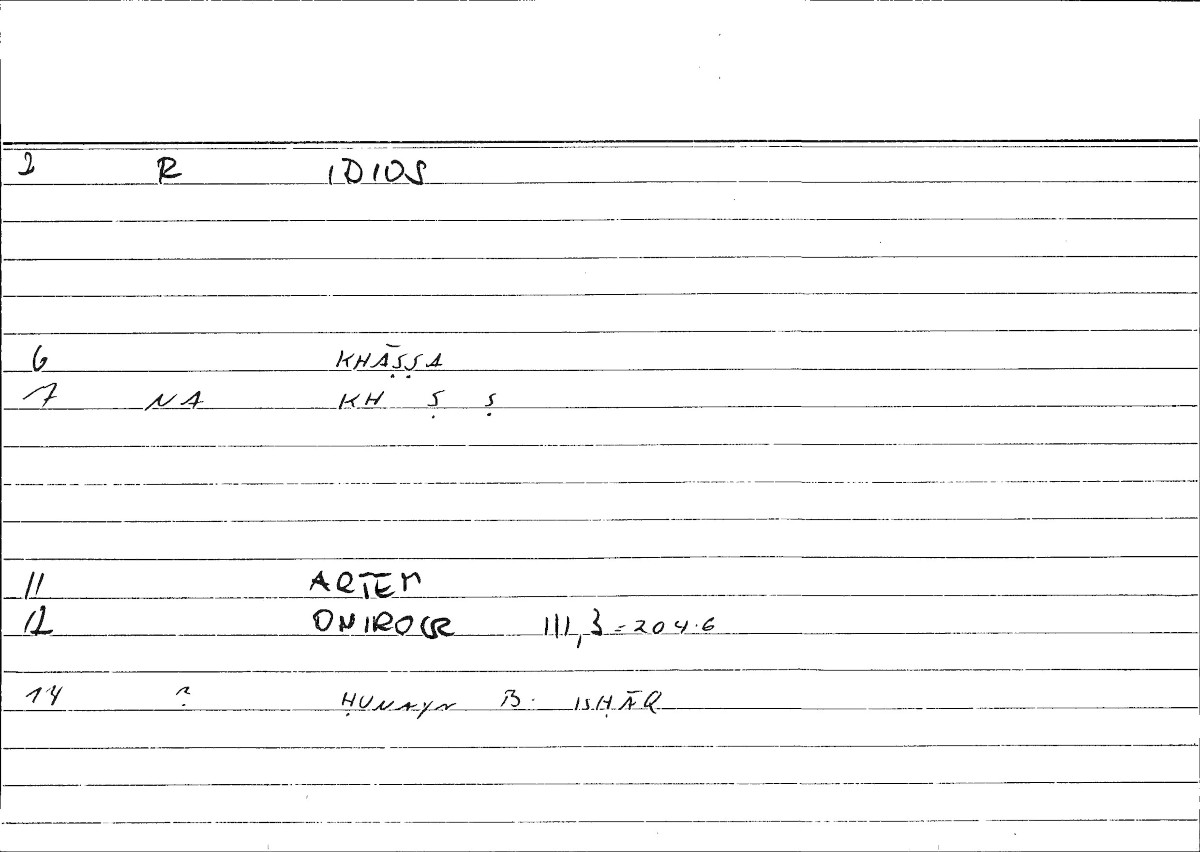 2 R IDIOS
6 KHĀṢṢA
7 NA KH Ṣ Ṣ
11 ARTEM
12 ONIROCR III,3 = 204.6
14 ? ḤUNAYN B. ISḤĀQ